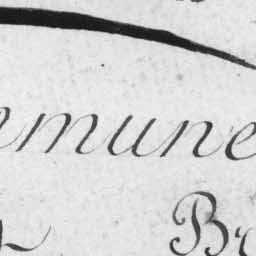 mmune
Br